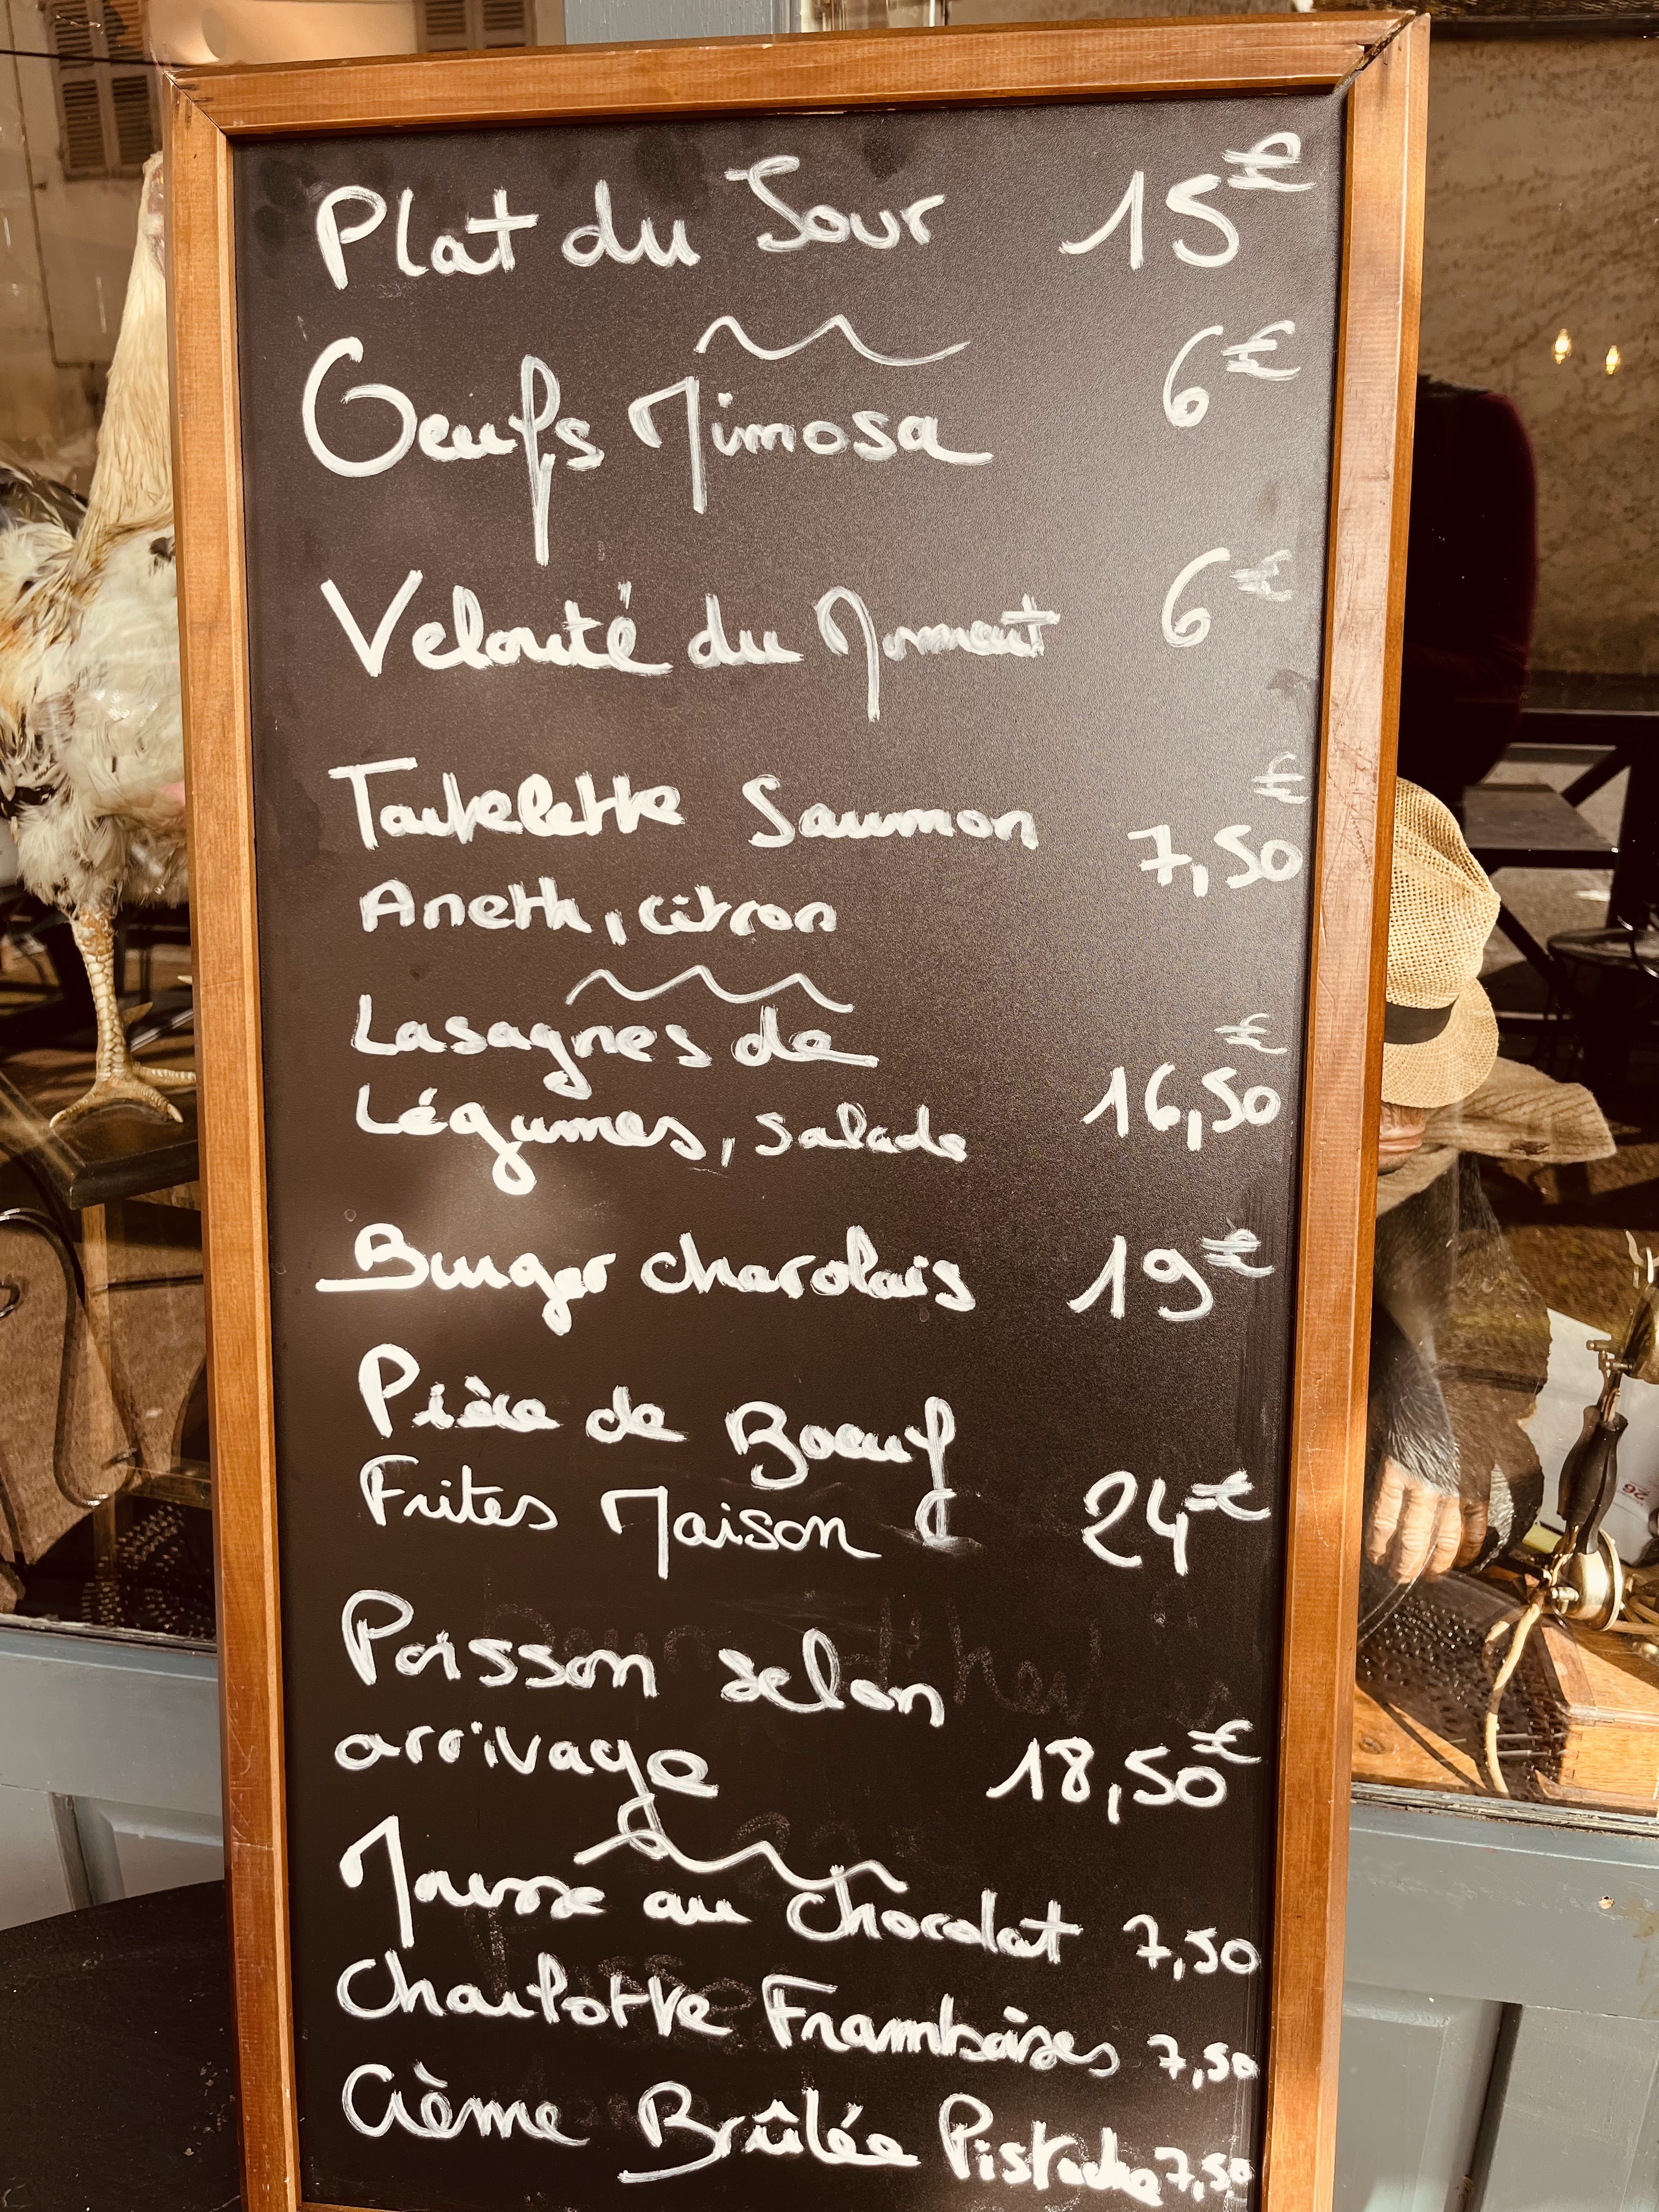 Plat du Jour 15€
Oeufs Mimosa 6€
Velouté du Moment 6€
Tartelette Saumon
Aneth, citron 7,50€
Lasagnes de
Légumes, salade 16,50€
Burger charolais 19€
Pièce de Boeuf
Frites Maison 24€
Poisson selon
arrivage 18,50€
Mousse au chocolat 7,50
Charlotte Framboises 7,50
Crème Brûlée Pistache 7,50
26